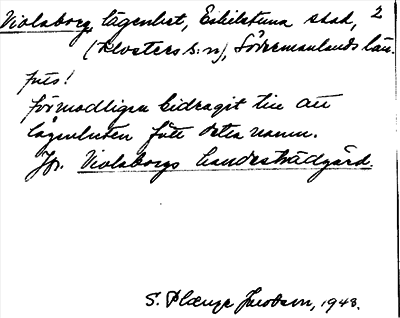 Violaborg, lägenhet, Eskilstuna stad, 2
(Klosters s:n), Södermanlands län.
förmodligen bidragit till att
lägenheten fått detta namn.
Jfr. Violaborgs handelsträdgård.
S. Plænge Jacobson, 1948.